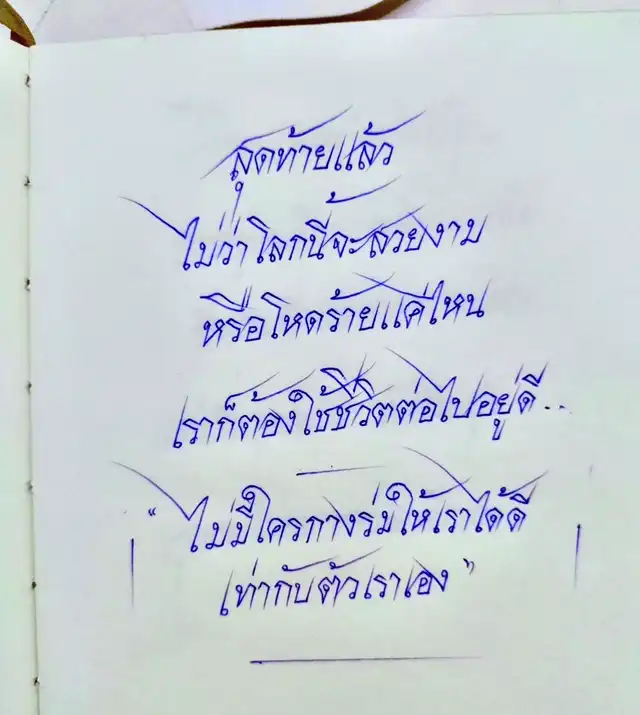 สุดท้ายแล้ว
ไม่ว่าโลกนี้จะสวยงาม
หรือโหดร้ายแค่ไหน
เราก็ต้องใช้ชีวิตต่อไปอยู่ดี..
"ไม่มีใครกางร่มให้เราได้ดี
เท่ากับตัวเราเอง"